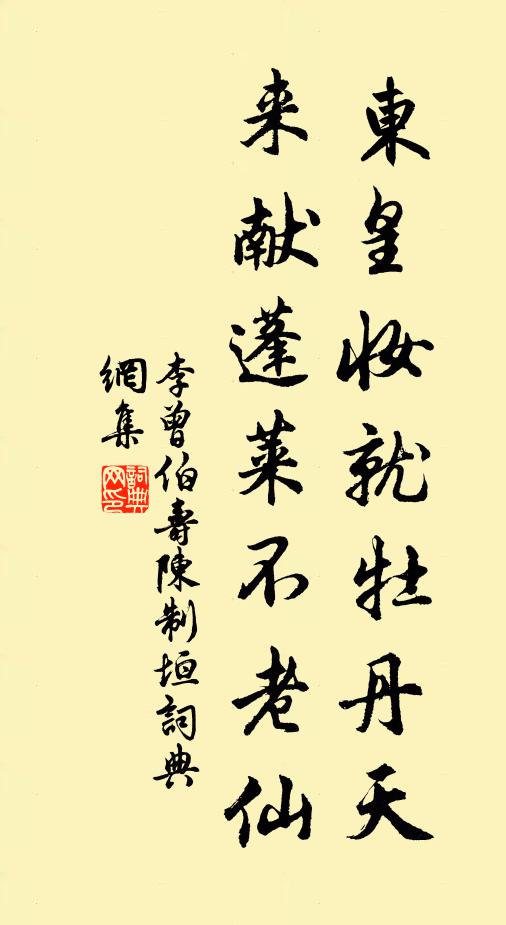 東皇妝就牡丹天
来献蓬莱不老仙
李曾伯壽陳制垣詞典
網集
詞典网印